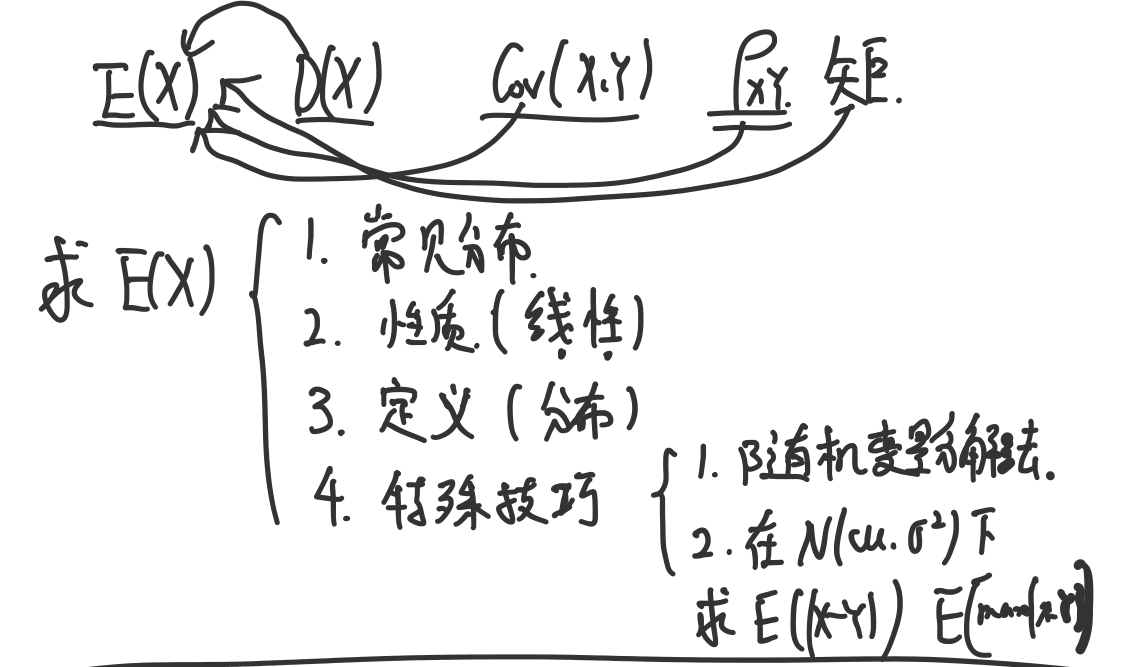 E(X) D(X) Cov(X,Y) ρXY. 矩.
求 E(X)
1. 常见分布.
2. 性质.(线性)
3. 定义(分布)
4. 特殊技巧
1. 随机变量分解法.
2. 在 N(μ.σ²)下
求 E(|X-Y|) E(max{X,Y})